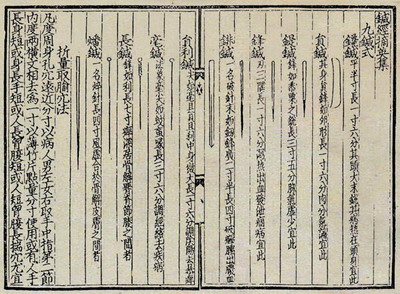 鍼經摘英集
九鍼式
鑱鍼 平半寸長一寸六分其頭大末銳其病熱在頭身宜此
員鍼 其身員鋒如卵形長一寸六分肉分氣滿宜此
鍉鍼 鋒如黍粟之銳長三寸五分脉氣虛少宜此
鋒鍼 刃三隅長一寸六分瀉熱出血發泄痼病宜此
鈹鍼 一名破鍼末如劍鋒廣二寸半長四寸破癰腫出膿血
員利鍼 尖如毫且員且利中身微大長一寸六分調陰陽去暴痹
毫鍼 法象毫尖如蚊虻喙長三寸六分調經絡去疾病
長鍼 鋒如利長七寸痹深居骨解腰脊節腠之間者
燔鍼 一名焠針長四寸風虛合於骨解皮膚之間者
折量取腧穴法
凡度周身孔穴遠近分寸以病人男左女右取手中指第二節
內度兩橫文相去為一寸以薄竹片點量分寸使用或有人手
長身短或身長手短或人長胸腹短或人短胸腹長揣穴尤宜